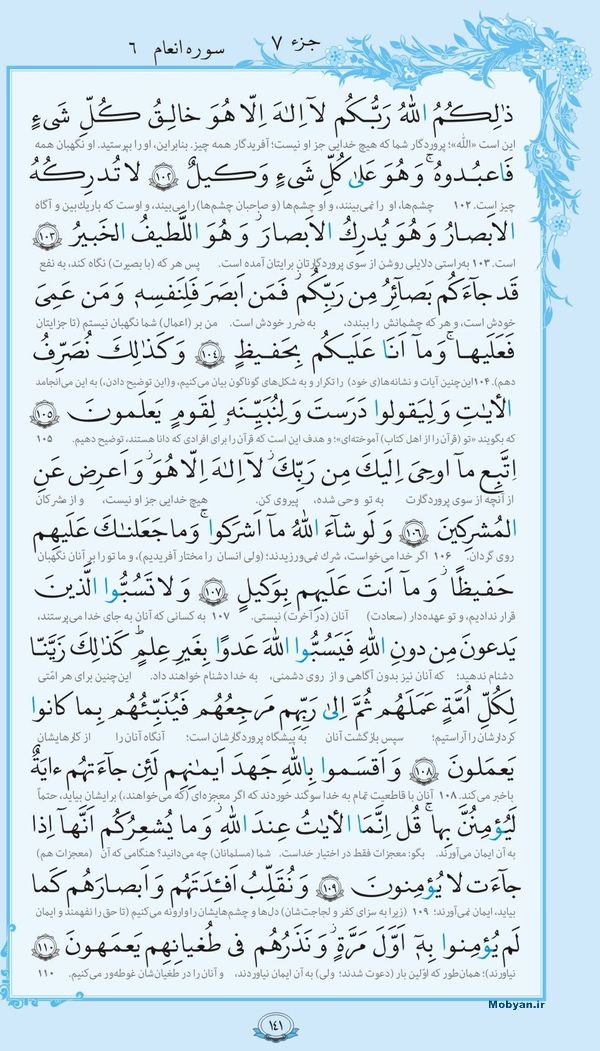 جزء ۷
سوره انعام ۶
ذٰلِكُمُ اللّٰهُ رَبُّكُم لآ اِلٰهَ اِلّا هُوَ خالِقُ كُلِّ شَیءٍ
این است «اللّه»؛ پروردگار شما که هیچ خدایی جز او نیست؛ آفریدگار همه چیز. بنابراین، او را بپرستید. او نگهبان همه
فَاعبُدوهُ ۚ وَ هُوَ عَلیٰ كُلِّ شَیءٍ وَكیلٌ ﴿۱۰۲﴾ لا تُدرِكُهُ
چیز است. ۱۰۲ چشم‌ها، او را نمی‌بینند، و او چشم‌ها (و صاحبان چشم‌ها) را می‌بیند، و اوست که باریک‌بین و آگاه
الاَبصارُ وَ هُوَ یُدرِكُ الاَبصارَ ۖ وَ هُوَ اللَّطیفُ الخَبیرُ ﴿۱۰۳﴾
است. ۱۰۳ به‌راستی دلایلی روشن از سوی پروردگارتان برایتان آمده است. پس هر که (با بصیرت) نگاه کند، به نفع
قَد جآءَكُم بَصآئِرُ مِن رَبِّكُم ۖ فَمَن اَبصَرَ فَلِنَفسِهٖ ۖ وَ مَن عَمِیَ
خودش است، و هر که چشمانش را ببندد، به ضرر خودش است. من بر (اعمال) شما نگهبان نیستم (تا جزایتان
فَعَلَیها ۚ وَ مآ اَنَا عَلَیكُم بِحَفیظٍ ﴿۱۰۴﴾ وَ كَذٰلِكَ نُصَرِّفُ
دهم). ۱۰۴ این‌چنین آیات و نشانه‌ها(ی خود) را تکرار و به شکل‌های گوناگون بیان می‌کنیم، و (این توضیح دادن،) به این می‌انجامد
الآیٰتِ وَ لِیَقولوا دَرَستَ وَ لِنُبَیِّنَهٗ لِقَومٍ یَعلَمونَ ﴿۱۰۵﴾
که بگویند «تو (قرآن را از اهل کتاب) آموخته‌ای»؛ و هدف این است که قرآن را برای افرادی که دانا هستند، توضیح دهیم. ۱۰۵
اِتَّبِع مآ اوحِیَ اِلَیكَ مِن رَبِّكَ ۖ لآ اِلٰهَ اِلّا هُوَ ۖ وَ اَعرِض عَنِ
از آنچه از سوی پروردگارت به تو وحی شده، پیروی کن. هیچ خدایی جز او نیست، و از مشرکان
المُشرِكینَ ﴿۱۰۶﴾ وَ لَو شآءَ اللّٰهُ مآ اَشرَكوا ۗ وَ ما جَعَلنٰكَ عَلَیهِم
روی گردان. ۱۰۶ اگر خدا می‌خواست، شرک نمی‌ورزیدند؛ (ولی انسان را مختار آفریدیم)، و ما تو را بر آنان نگهبان
حَفیظًا ۖ وَ مآ اَنتَ عَلَیهِم بِوَكیلٍ ﴿۱۰۷﴾ وَ لا تَسُبُّوا الَّذینَ
قرار ندادیم، و تو عهده‌دار (سعادت) آنان (در آخرت) نیستی. ۱۰۷ به کسانی که آنان به جای خدا می‌پرستند،
یَدعونَ مِن دونِ اللّٰهِ فَیَسُبُّوا اللّٰهَ عَدوًا بِغَیرِ عِلمٍ ۗ كَذٰلِكَ زَیَّنّا
دشنام ندهید؛ که آنان نیز بدون آگاهی و از روی دشمنی، به خدا دشنام خواهند داد. این‌چنین برای هر امّتی
لِكُلِّ اُمَّةٍ عَمَلَهُم ثُمَّ اِلیٰ رَبِّهِم مَرجِعُهُم فَیُنَبِّئُهُم بِما كانوا
کردارشان را آراستیم؛ سپس بازگشت آنان به پیشگاه پروردگارشان است؛ آنگاه آنان را از کارهایشان
یَعمَلونَ ﴿۱۰۸﴾ وَ اَقسَموا بِاللّٰهِ جَهدَ اَیمٰنِهِم لَئِن جآءَتهُم ءایَةٌ
باخبر می‌کند. ۱۰۸ آنان با قاطعیت تمام به خدا سوگند خوردند که اگر معجزه‌ای (که می‌خواهند،) برایشان بیاید، حتماً
لَیُؤمِنُنَّ بِها ۚ قُل اِنَّمَا الآیٰتُ عِندَ اللّٰهِ ۖ وَ ما یُشعِرُكُم اَنَّهآ اِذا
به آن ایمان می‌آورند. بگو: معجزات فقط در اختیار خداست. شما (مسلمانان) چه می‌دانید؟ هنگامی که آن (معجزات هم)
جآءَت لا یُؤمِنونَ ﴿۱۰۹﴾ وَ نُقَلِّبُ اَفئِدَتَهُم وَ اَبصارَهُم كَما
بیاید، ایمان نمی‌آورند؛ ۱۰۹ (زیرا به سزای کفر و لجاجت‌شان) دل‌ها و چشم‌هایشان را وارونه می‌کنیم (تا حق را نفهمند و ایمان
لَم یُؤمِنوا بِهٖٓ اَوَّلَ مَرَّةٍ وَ نَذَرُهُم فی طُغیانِهِم یَعمَهونَ ﴿۱۱۰﴾
نیاورند)؛ همان‌طور که اوّلین بار (دعوت شدند؛ ولی) به آن ایمان نیاوردند، و آنان را در طغیان‌شان غوطه‌ور می‌کنیم. ۱۱۰
Mobyan.ir
۱۴۱